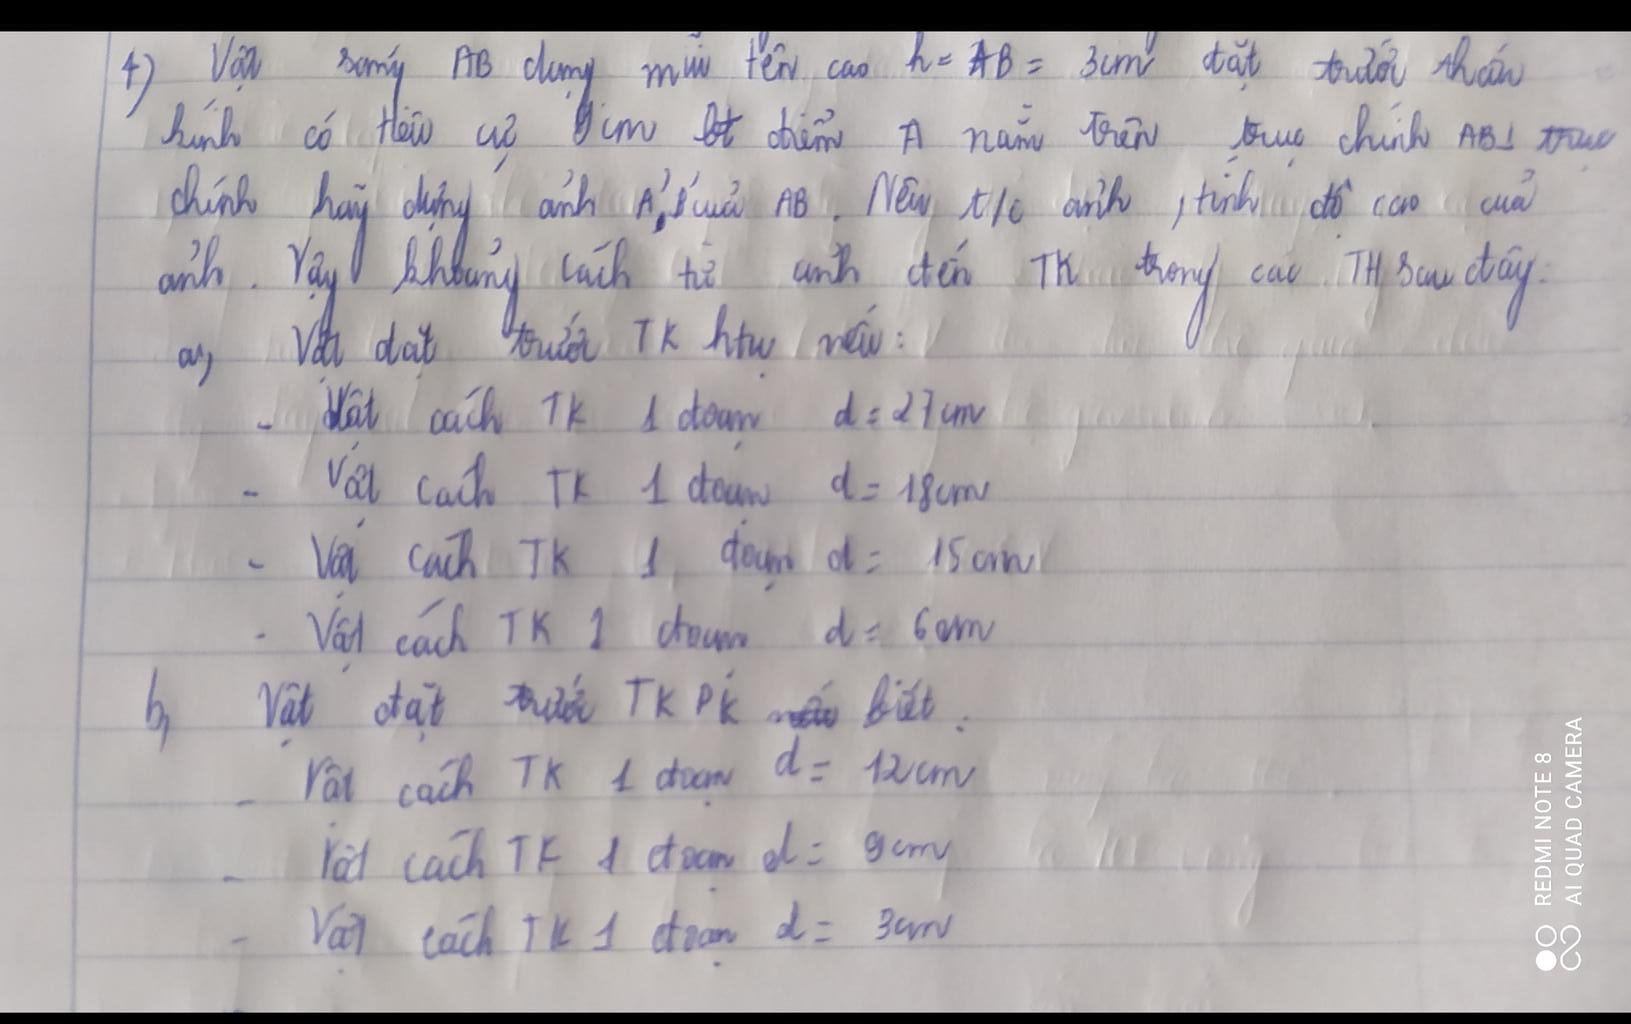 4) Vật sáng AB dạng mũi tên cao h = AB = 3cm đặt trước thấu
kính có tiêu cự 9cm điểm A nằm trên trục chính AB⊥ trục
chính hãy dựng ảnh A'B' của AB. Nêu t/c ảnh, tính độ cao của
ảnh. Vậy khoảng cách từ ảnh đến TK trong các TH sau đây:
a) Vật đặt trước TK htụ nếu:
- Vật cách TK 1 đoạn d = 27cm
- Vật cách TK 1 đoạn d = 18cm
- Vật cách TK 1 đoạn d = 15cm
- Vật cách TK 1 đoạn d = 6cm
b, Vật đặt trước TKPK biết.
- Vật cách TK 1 đoạn d = 12cm
- Vật cách TK 1 đoạn d = 9cm
- Vật cách TK 1 đoạn d = 3cm
REDMI NOTE 8
AI QUAD CAMERA